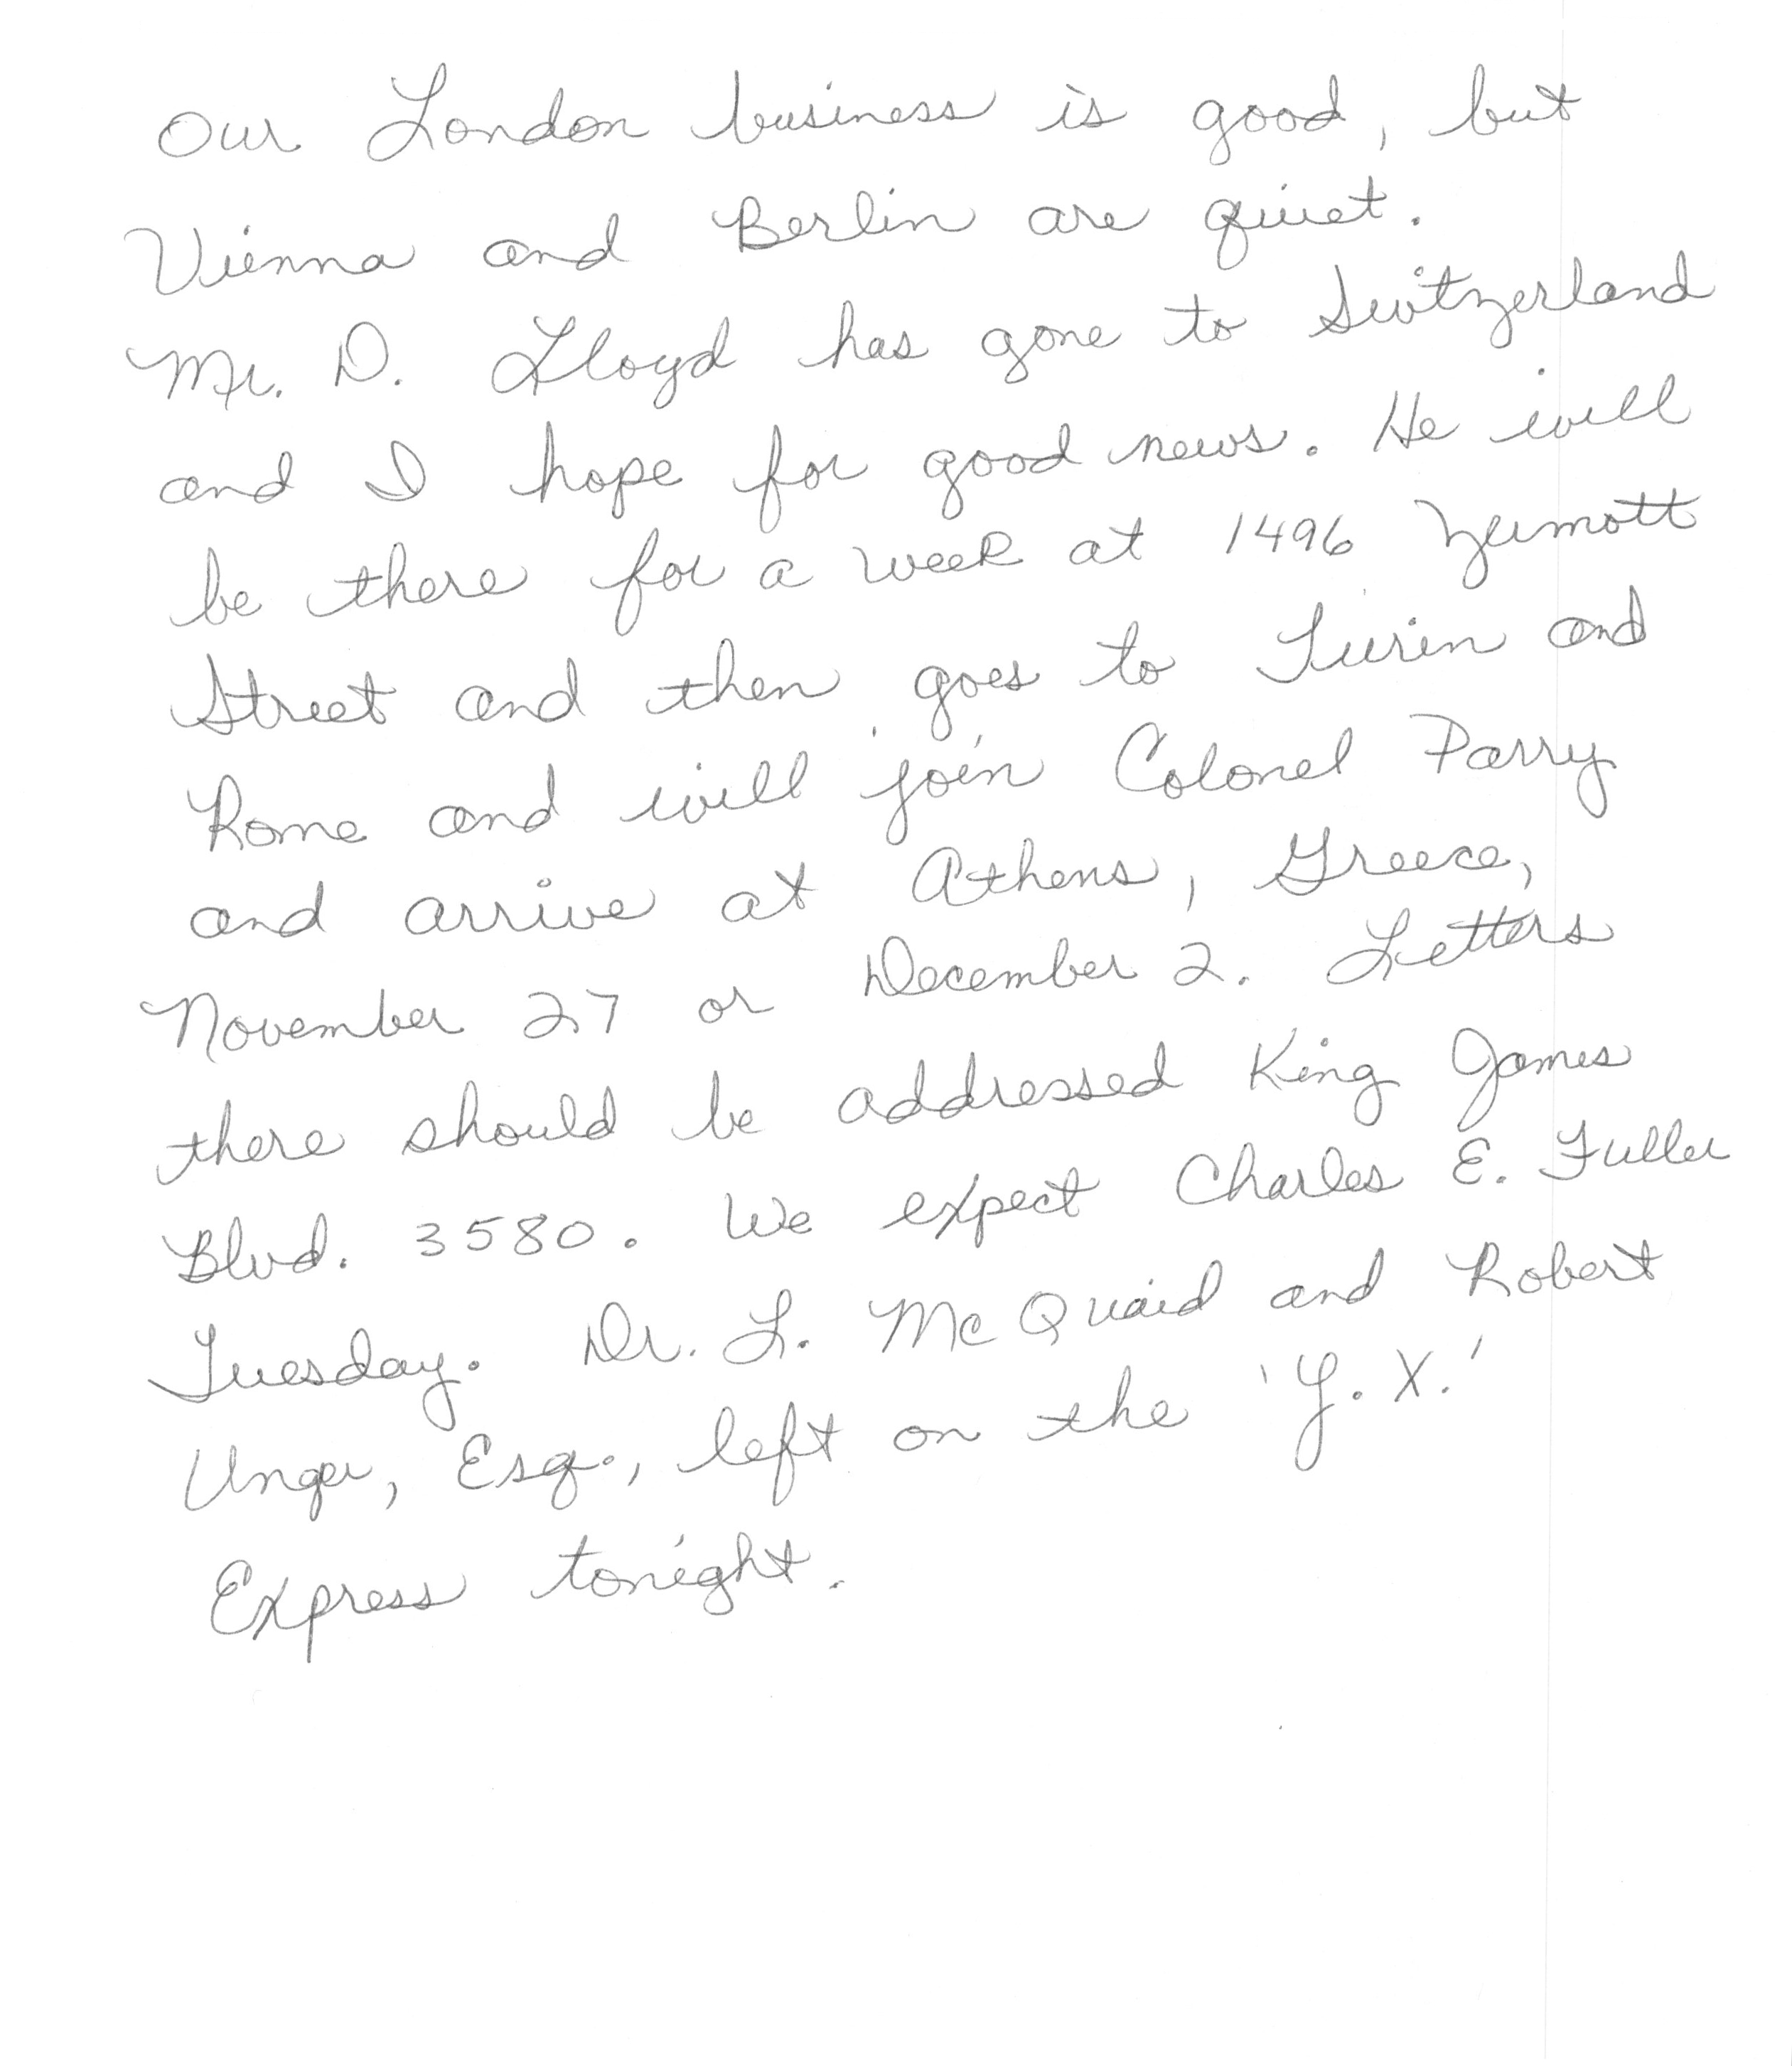 Our London business is good, but
Vienna and Berlin are quiet.
Mr. D. Lloyd has gone to Switzerland
and I hope for good news. He will
be there for a week at 1496 Zermott
Street and then goes to Turin and
Rome and will join Colonel Parry
and arrive at Athens, Greece,
November 27 or December 2. Letters
there should be addressed King James
Blvd. 3580. We expect Charles E. Fuller
Tuesday. Dr. L. McQuaid and Robert
Unger, Esq., left on the 'Y.X.'
Express tonight.